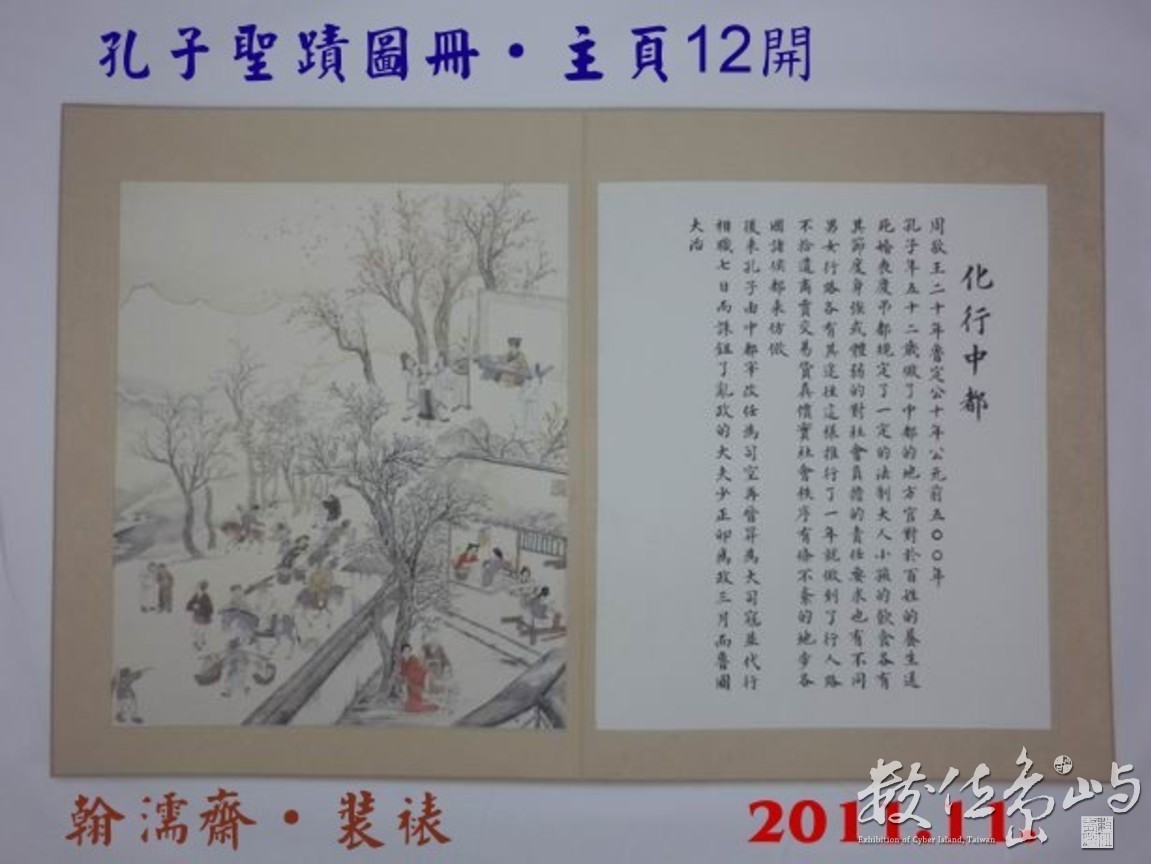 孔子聖蹟圖冊・主頁12開
化行中都
周敬王二十年魯定公十年公元前五〇〇年
孔子年五十二歲做了中都的地方官對於百姓的養生送
死婚喪慶弔都規定了一定的法制大人小孩的飲食各有
其節度身強或體弱的對社會負擔的責任要求也有不同
男女行路各有其途徑這樣推行了一年就做到了行人路
不拾遺商賈交易貨真價實社會秩序有條不紊的地步各
國諸侯都來仿傚
後來孔子由中都宰改任為司空再曾昇為大司寇並代行
相職七日而誅鉏了亂政的大夫少正卯為政三月而魯國
大治
翰濡齋・裝裱
2011.11.
數位島嶼
Exhibition of Cyber Island, Taiwan